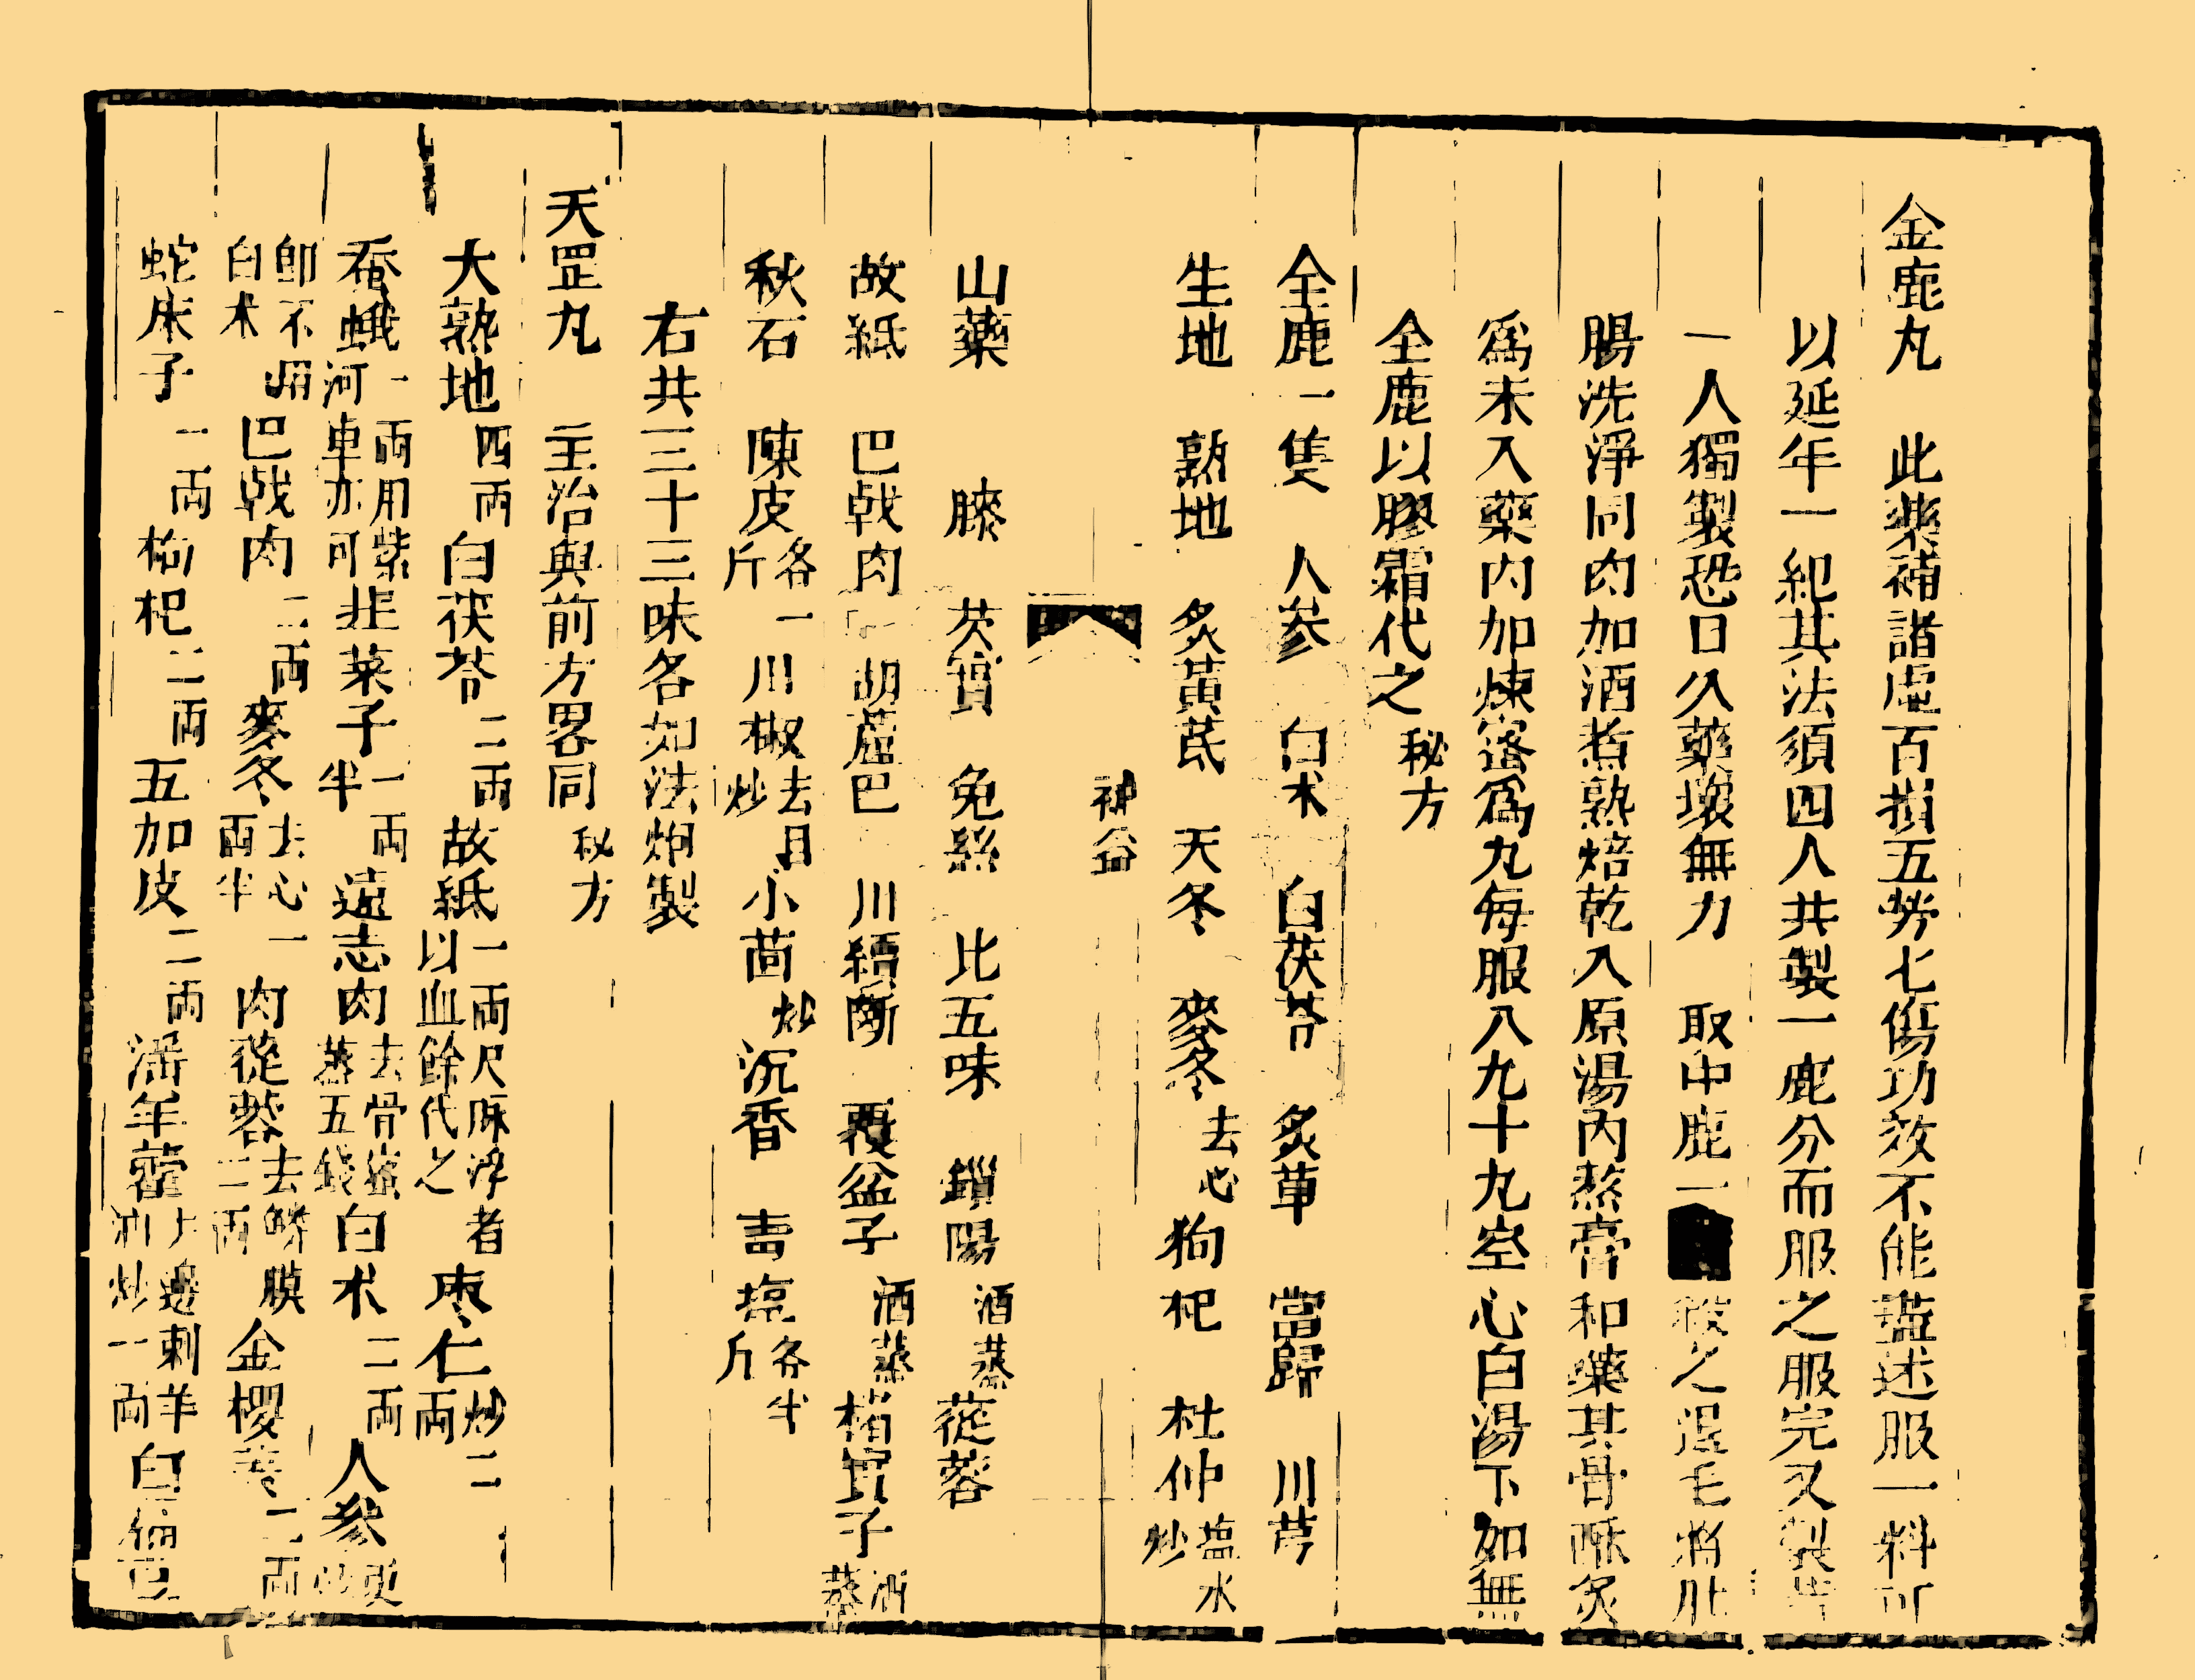 金鹿丸　此藥補諸虛百損五勞七傷功效不能盡述服一料可
以延年一紀其法須四人共製一鹿分而服之服完又製
一人獨製恐日久藥壞無力　取中鹿一　之退毛將肚
腸洗淨同肉加酒煮熟焙乾入原湯內熬膏和藥其骨酥炙
爲末入藥內加煉蜜爲丸每服八九十丸空心白湯下如無
全鹿以膠霜代之　秘方
全鹿一隻　人參　白朮　白茯苓　炙草　當歸　川芎
生地　熟地　炙黃芪　天冬　麥冬去心　狗杞　杜仲塩水炒
神益
山藥　膝　芡實　兔絲　比五味　鎖陽酒蒸　蓯蓉
故紙　巴戟肉　胡蘆巴　川續斷　覆盆子酒蒸　楮實子酒蒸
秋石　陳皮各一斤　川椒去目炒　小茴炒　沉香　青塩各半斤
右共三十三味各如法炮製
天罡丸　主治與前方畧同　秘方
大熟地四兩　白茯苓二兩　故紙一兩尺麻浮者以血餘代之　枣仁炒二兩
蚕蛾一兩用紫河車亦可　韭菜子一兩半　遠志肉去骨蒸五錢　白朮二兩　人參
卽不用白朮　巴戟肉二兩　麥冬去心一兩半　肉蓯蓉去鱗膜二兩　金櫻　二兩
蛇床子一兩　枸杞二兩　五加皮二兩　潼年藿去邊刺羊油炒一兩　白